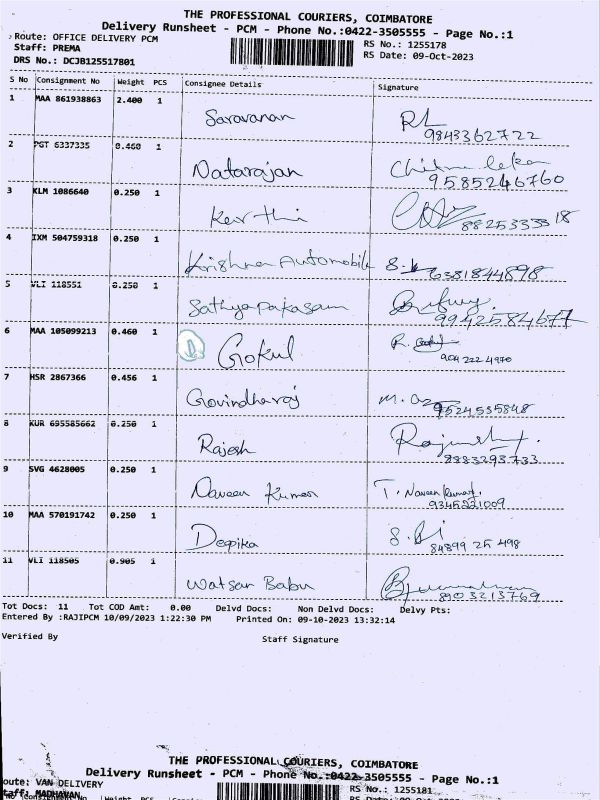 THE PROFESSIONAL COURIERS, COIMBATORE
Delivery Runsheet - PCM - Phone No.:0422-3505555 - Page No.:1
Route: OFFICE DELIVERY PCM
Staff: PREMA
RS No.: 1255178
DRS No.: DCJB125517801
RS Date: 09-Oct-2023
S No Consignment No Weight PCS Consignee Details Signature
1 MAA 861938863 2.400 1 Saravanan
9843362722
2 PGT 6337335 0.460 1 Natarajan
9585246760
3 KLM 1086640 0.250 1 Kerthi
8825333318
4 IXM 504759318 0.250 1 Krishna Automobile
6381844898
5 VLI 118551 0.250 1 Sathyapakasam
6 MAA 105099213 0.460 1 Gokul
904 222 4970
7 HSR 2867366 0.456 1 Govindharaj
9524535848
8 KUR 695585662 0.250 1 Rajesh
8883293733
9 SVG 4628005 0.250 1 Naveen Kumar T. Naveen Kumar
9345221009
10 MAA 570191742 0.250 1 Deepika
84899 25 498
11 VLI 118505 0.905 1 Watsan Babu
8903213769
Tot Docs: 11 Tot COD Amt: 0.00 Delvd Docs: Non Delvd Docs: Delvy Pts:
Entered By :RAJIPCM 10/09/2023 1:22:30 PM Printed On: 09-10-2023 13:32:14
Verified By Staff Signature
THE PROFESSIONAL COURIERS, COIMBATORE
Delivery Runsheet - PCM - Phone No.:0422-3505555 - Page No.:1
oute: VAN DELIVERY
taff: MADHAVAN
RS No.: 1255181